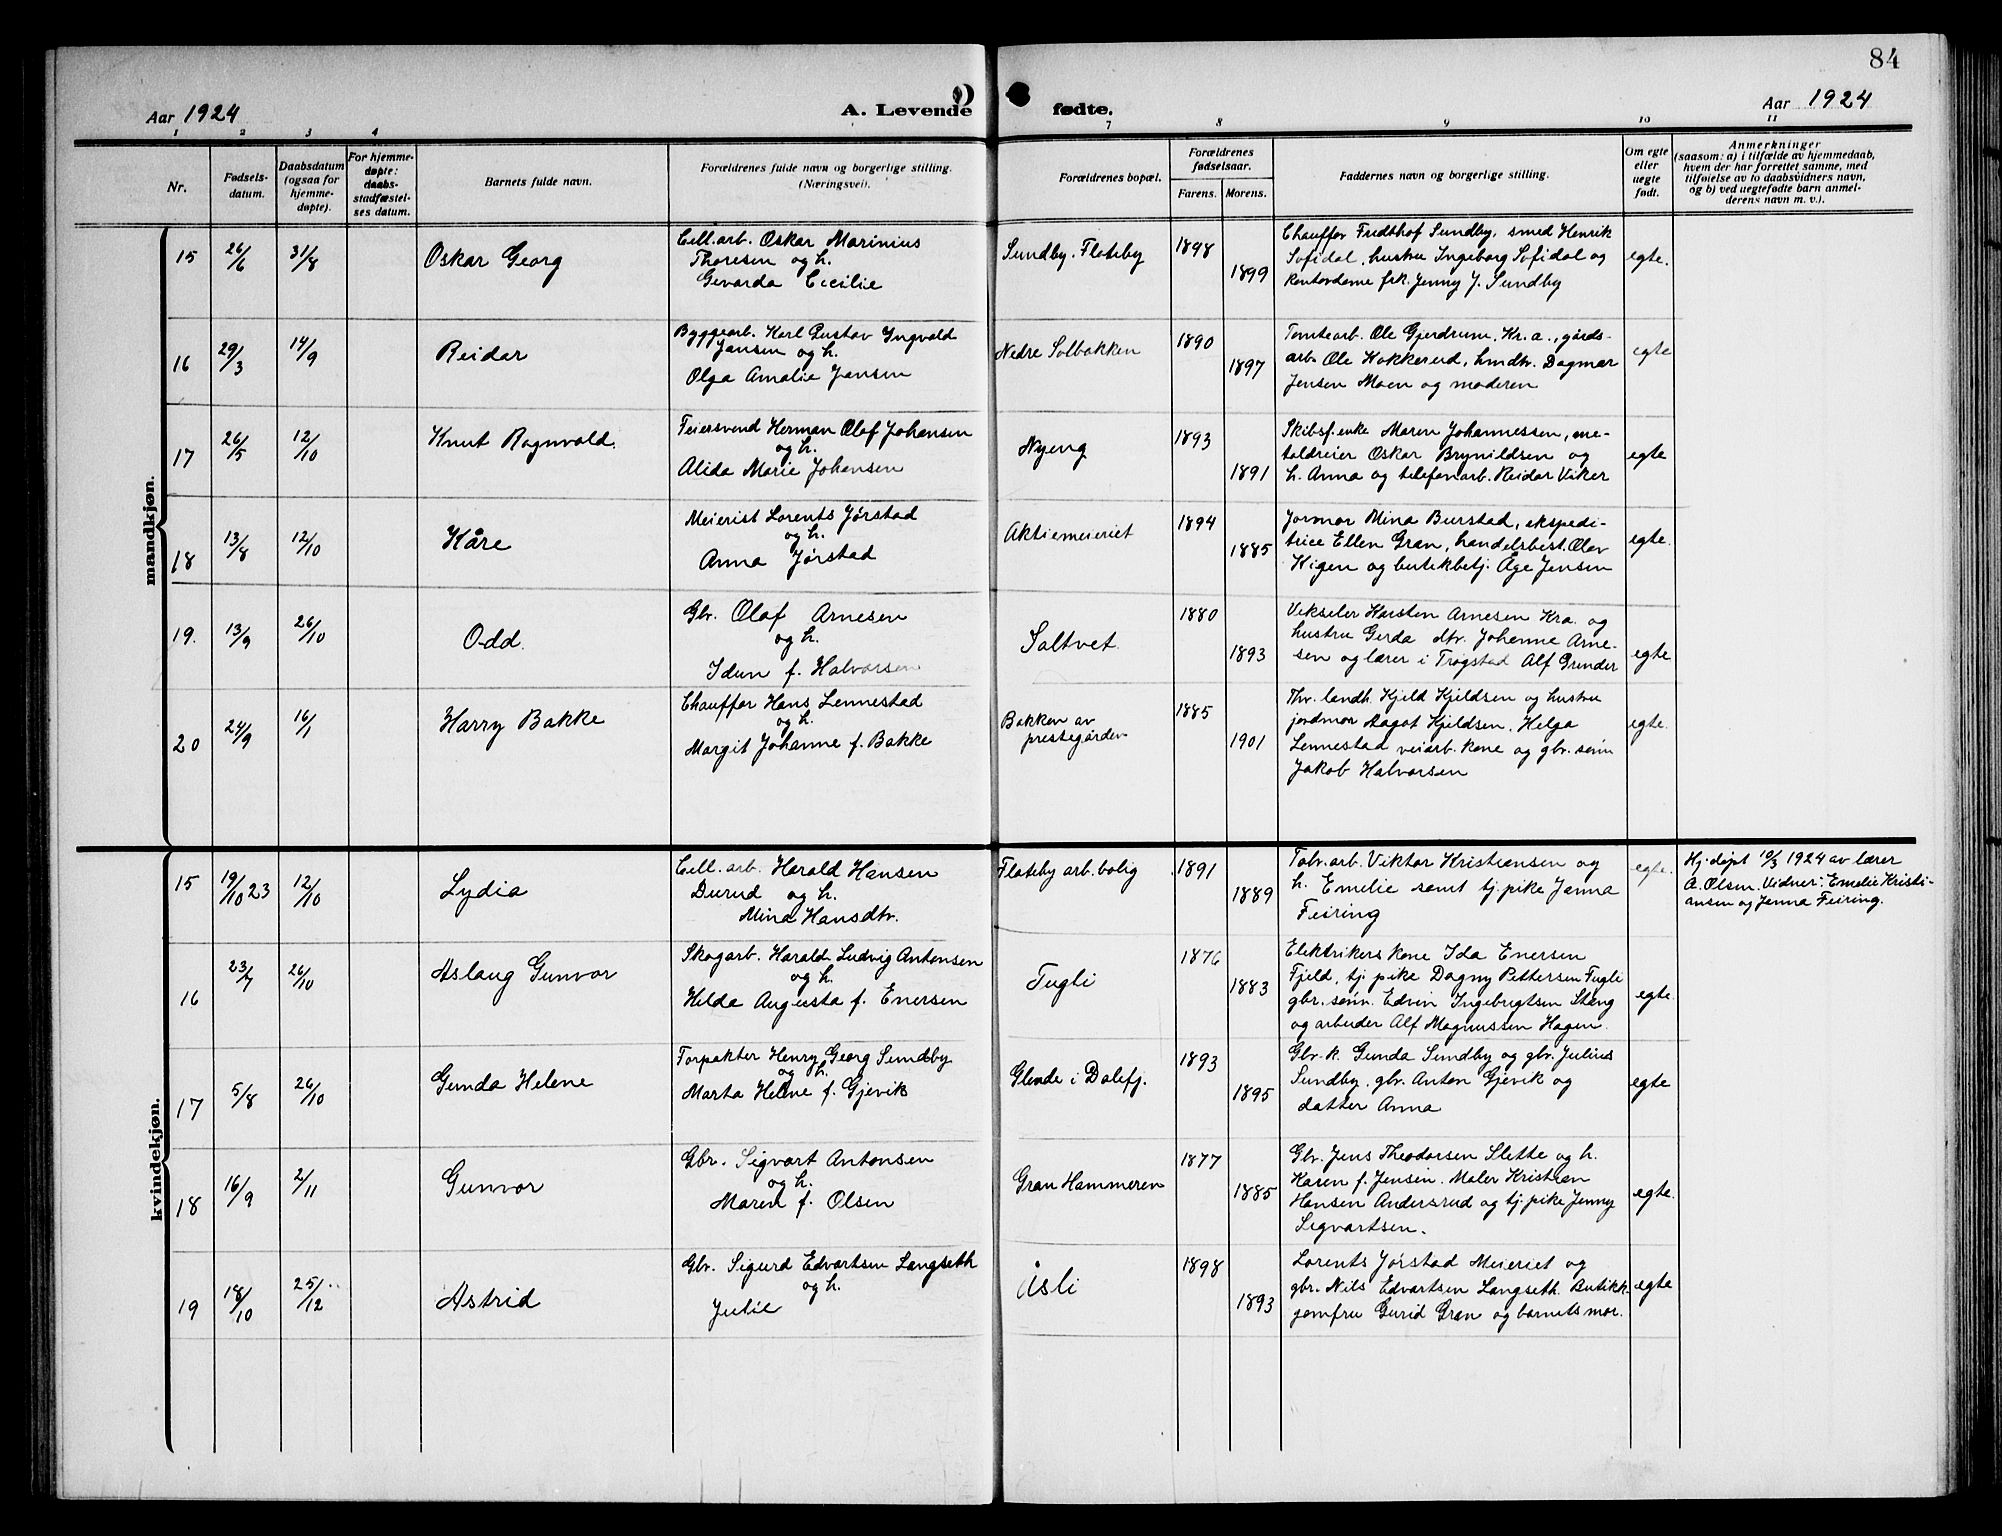 84
Aar 1924
A. Levende fødte.
Aar 1924
1 2 3 4 7 8 9 10 11
Nr.
Fødselsdatum.
Daabsdatum (ogsaa for hjemmedøpte).
For hjemmedøpte: daabsstadfæstelses datum.
Barnets fulde navn.
Forældrenes fulde navn og borgerlige stilling. (Næringsvei).
Forældrenes bopæl.
Forældrenes fødselsaar.
Farens. Morens.
Faddernes navn og borgerlige stilling.
Om egte eller uegte født.
Anmerkninger
(saasom: a) i tilfælde av hjemmedaab,
hvem der har forrettet samme, med
tilføielse av to daabsvidners navn,
og b) ved uegtefødte barn anmel-
derens navn m. v.).
mandkjøn.
15 26/6 31/8 Oskar Georg
Cell.arb. Oskar Marinius
Thoresen og h.
Gevarda Cecilie
Sundby. Flateby
1898
1899
Chauffør Fridthof Sundby, smed Henrik
Sofidal, hustru Ingeborg Sofidal og
kontordame frk. Jenny J. Sundby
egte.
16 29/3 14/9 Reidar
Byggearb. Karl Gustav Ingvald
Jansen og h.
Olga Amalie Jansen
Nedre Solbakken
1890
1897
Tomtearb. Ole Gjerdrum, Kr.a., gårds-
arb. Ole Hokkerud, hmdtr. Dagmar
Jensen Moen og moderen
egte
17 26/5 12/10 Knut Ragnvald.
Feiersvend Herman Olaf Johansen
og h.
Alida Marie Johansen
Nyeng
1893
1891
Skibsf.enke Maren Johannessen, me-
taldreier Oskar Brynildsen og
h. Anna og telefonarb. Reidar Viker
egte
18 13/8 12/10 Kåre
Meierist Lorents Jørstad
og h.
Anna Jørstad
Aktiemeieriet
1894
1885
Jormor Mina Burstad, ekspedi-
trice Ellen Gran, handelsbest. Olav
Kigen og butikbetj. Åge Jensen
egte.
19. 13/9 26/10 Odd.
Gbr. Olaf Arnesen
og h.
Idun f. Halvorsen
Saltvet.
1880
1893
Vekseler Karsten Arnesen Kra. og
hustru Gerda dtr. Johanne Arne-
sen og lærer i Trøgstad Alf Grinder
egte
20 24/9 16/1 Harry Bakke
Chauffør Hans Lennestad
og h.
Margit Johanne f. Bakke
Bakken av
prestegården
1885
1901
Thv. landh. Kjeld Kjeldsen og hustru
jordmor Aagot Kjeldsen. Helga
Lennestad veiarb. kone og gbr. sønn
Jakob Halvorsen
egte.
kvindekjøn.
15 19/10 23 12/10 Lydia
Cell. arb. Harald Hansen
Durud og h.
Mina Hansdtr.
Flateby arb. bolig
1891
1889
Tobr.arb. Viktor Kristiansen og
h. Emelie samt tj.pike Janna
Feiring
egte.
Hj. døpt 10/3 1924 av lærer
A. Olsen. Vidner: Emelie Kristi-
ansen og Janna Feiring.
16 23/7 26/10 Aslaug Gunvor
Skogarb. Harald Ludvig Antonsen
og h.
Hilda Augusta f. Enersen
Fugli
1876
1883
Elektrikers kone Ida Enersen
Fjeld, tj. pike Dagny Pettersen Fugli
gbr. sønn. Edvin Ingebrigtsen Steng
og arbeider Alf Magnussen Hagen.
egte
17 5/8 26/10 Gunda Helene
Forpakter Henry Georg Sundby
og h.
Marta Helene f. Gjevik
Glende i Dalefj.
1893
1895
Gbr. k. Gunda Sundby og gbr. Julius
Sundby. gbr. Anton Gjevik og
datter Anna
egte
18 16/9 2/11 Gunvor
Gbr. Sigvart Antonsen
og h.
Maren f. Olsen
Gran Hammeren
1877
1885
Gbr. Jens Theodorsen Slette og h.
Karen f. Jensen. Maler Kristian
Hansen Andersrud og tj. pike Jenny
Sigvartsen.
egte.
19 18/10 25/12 Astrid
Gbr. Sigurd Edvartsen Langseth
og h.
Julie
Åsli
1898
1893
Lorents Jørstad Meieriet og
gbr. Nils Edvartsen Langseth. Butikk-
jomfru Gurid Gran og barnets mor.
egte